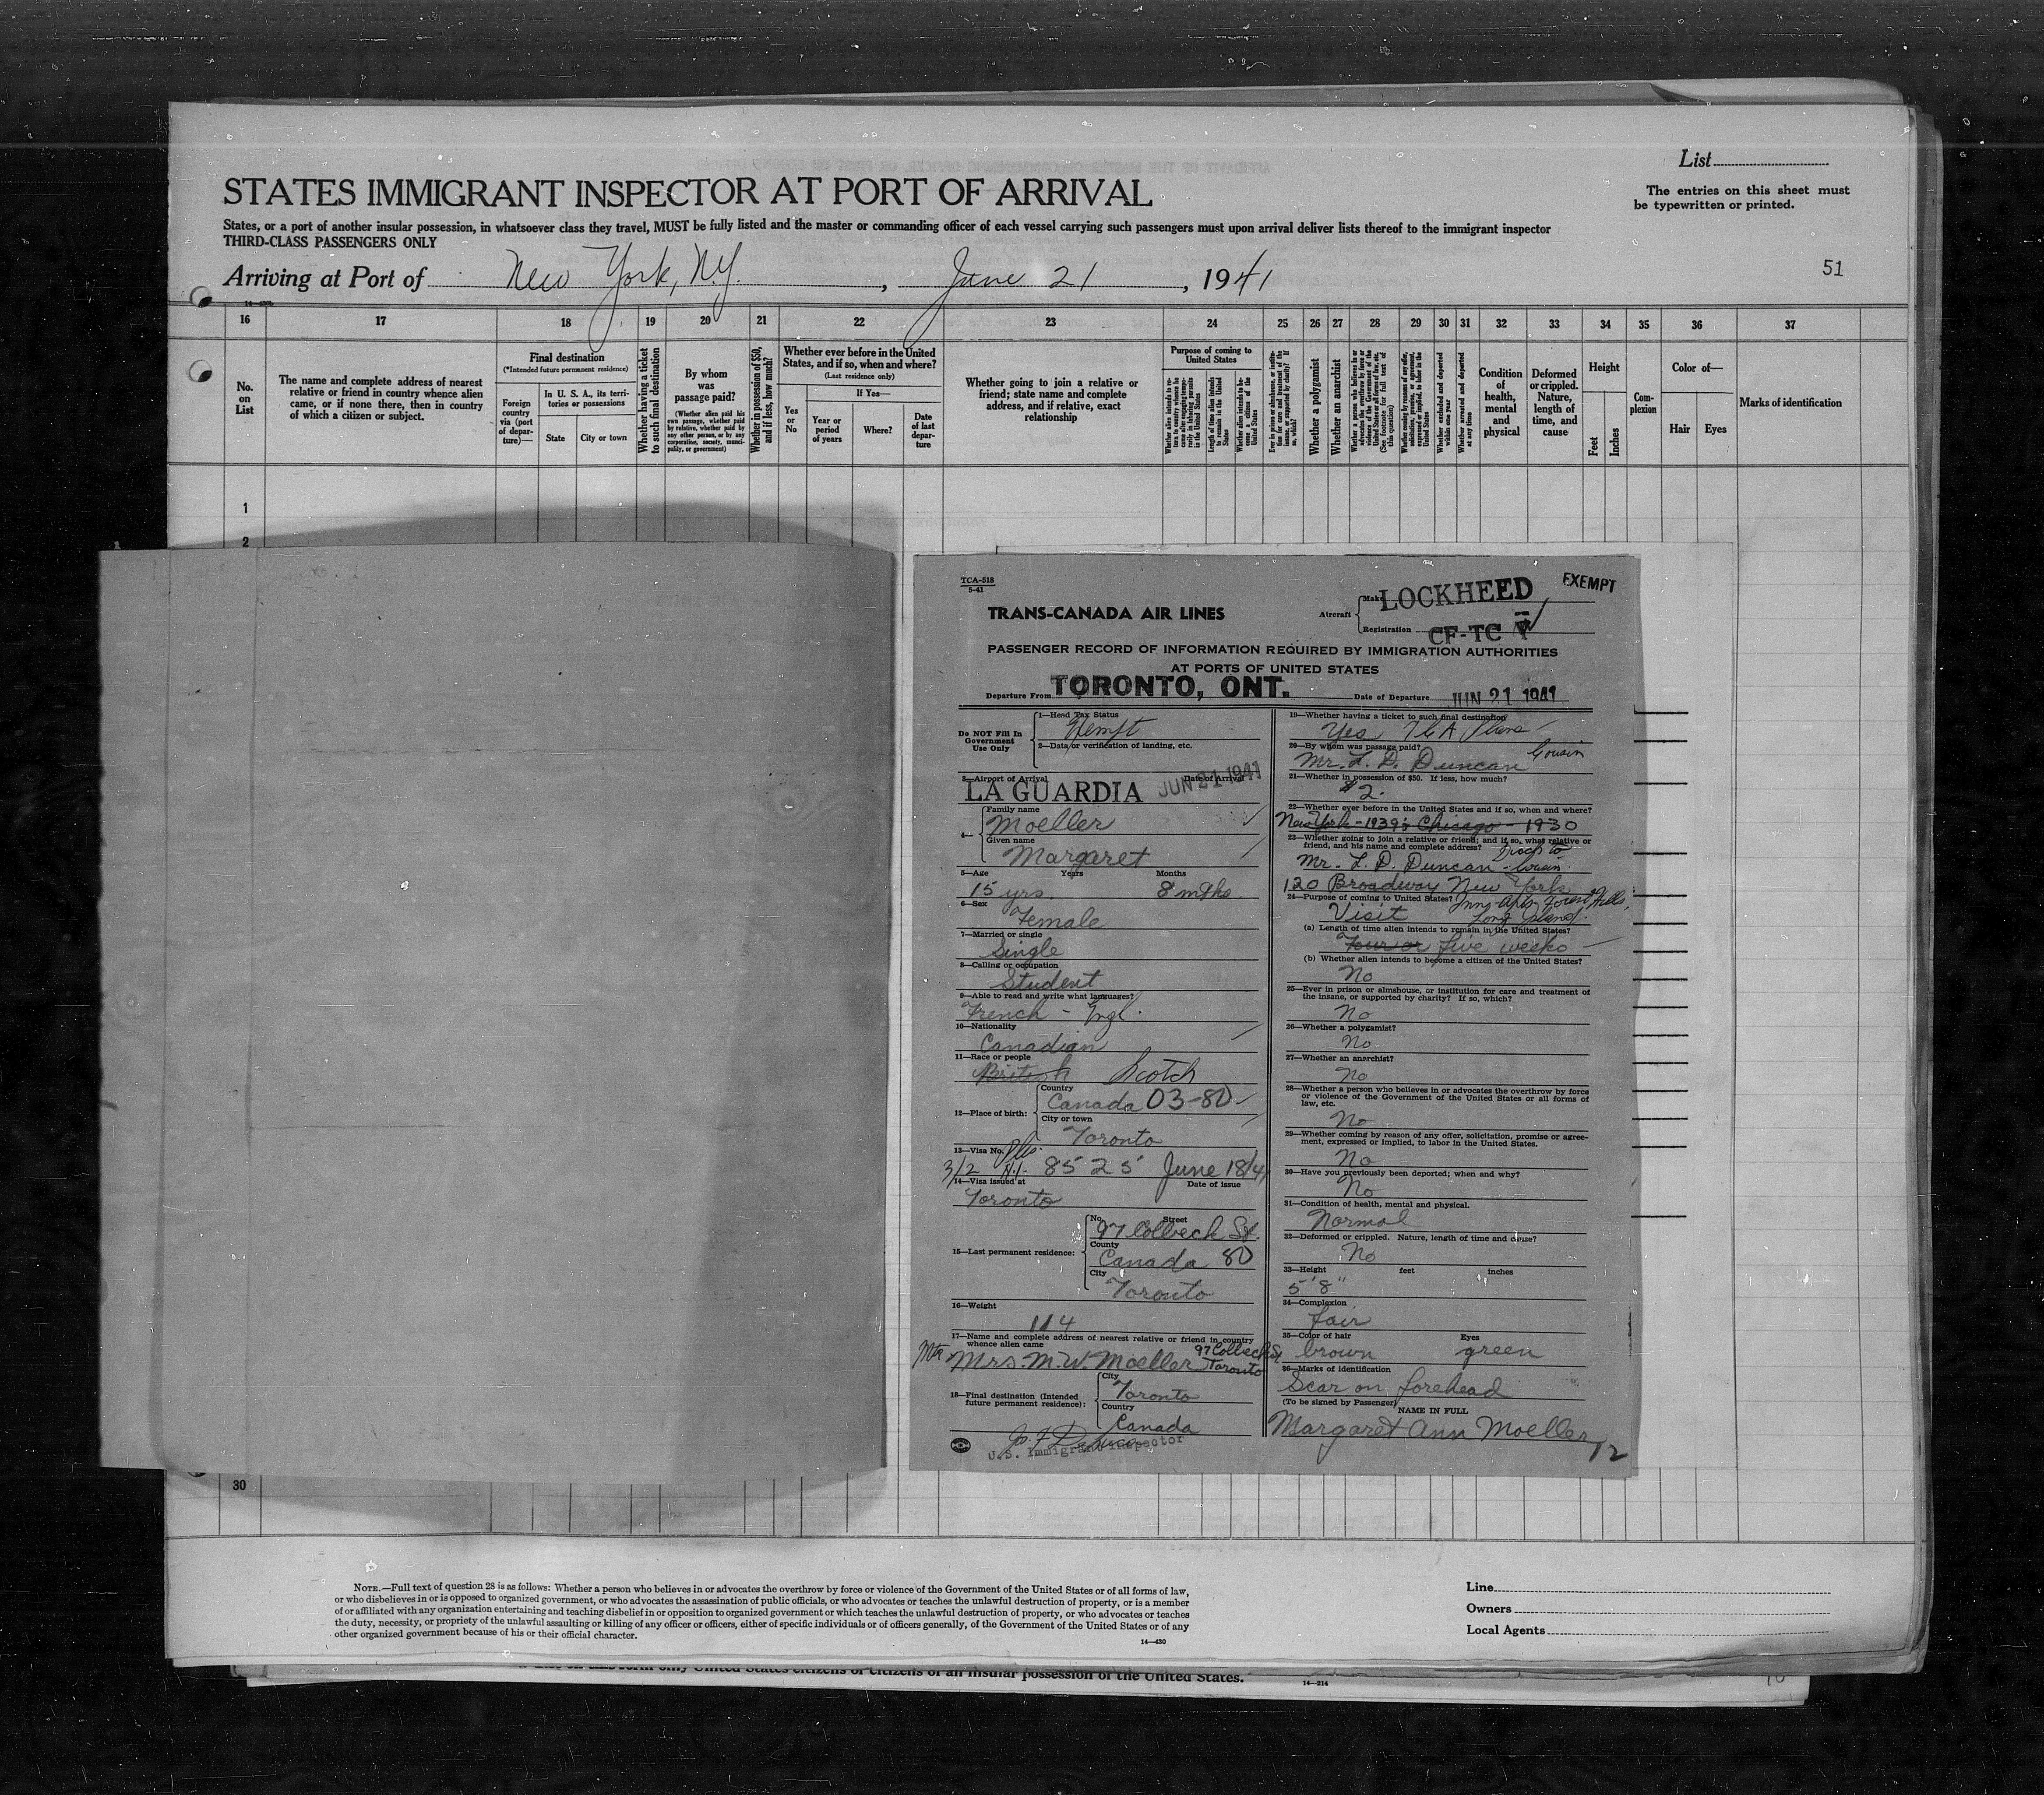 List
STATES IMMIGRANT INSPECTOR AT PORT OF ARRIVAL
The entries on this sheet must
be typewritten or printed.
States, or a port of another insular possession, in whatsoever class they travel, MUST be fully listed and the master or commanding officer of each vessel carrying such passengers must upon arrival deliver lists thereof to the immigrant inspector
THIRD-CLASS PASSENGERS ONLY
Arriving at Port of New York, N.Y., June 21, 1941
51
16 17 18 19 20 21 22 23 24 25 26 27 28 29 30 31 32 33 34 35 36 37
No.
on
List
The name and complete address of nearest
relative or friend in country whence alien
came, or if none there, then in country
of which a citizen or subject.
Final destination
(*Intended future permanent residence)
Foreign
country
via (port
of depar-
ture)—
In U. S. A., its terri-
tories or possessions
State
City or town
Whether having a ticket
to such final destination
By whom
was
passage paid?
(Whether alien paid his
own passage, whether paid
by relative, whether paid by
any other person, or by any
corporation, society, munici-
pality, or government)
Whether in possession of $50,
and if less, how much?
Whether ever before in the United
States, and if so, when and where?
(Last residence only)
If Yes—
Yes
or
No
Year or
period
of years
Where?
Date
of last
depar-
ture
Whether going to join a relative or
friend; state name and complete
address, and if relative, exact
relationship
Purpose of coming to
United States
Length of time alien intends
to remain in the United
States
Whether alien intends to be-
come a citizen of the
United States
Whether a polygamist
Whether an anarchist
Whether excluded and deported
within one year
Whether arrested and deported
at any time
Condition
of
health,
mental
and
physical
Deformed
or crippled.
Nature,
length of
time, and
cause
Height
Feet
Inches
Com-
plexion
Color of—
Hair
Eyes
Marks of identification
1
2
TCA-518
5-41
TRANS-CANADA AIR LINES
Aircraft
Make LOCKHEED
EXEMPT
Registration CF-TC
PASSENGER RECORD OF INFORMATION REQUIRED BY IMMIGRATION AUTHORITIES
AT PORTS OF UNITED STATES
Departure From TORONTO, ONT. Date of Departure JUN 21 1941
Do NOT Fill In
Government
Use Only
1—Head Tax Status
2—Data or verification of landing, etc.
3—Airport of Arrival Date of Arrival
LA GUARDIA JUN 21 1941
4— Family name
Moeller
Given name
Margaret
5—Age Years Months
15 yrs. 8 mths.
6—Sex
Female
7—Married or single
Single
8—Calling or occupation
Student
9—Able to read and write what languages?
French - Engl.
10—Nationality
Canadian
11—Race or people
British Scotch
12—Place of birth:
Country
Canada 03-80
City or town
Toronto
13—Visa No.
3/2 8525 June 18/41
14—Visa issued at Date of issue
Toronto
15—Last permanent residence:
No. Street
97 Colbeck St.
County
Canada 80
City
Toronto
16—Weight
114
17—Name and complete address of nearest relative or friend in country
whence alien came
Mrs. M. W. Moeller 97 Colbeck St
Toronto
18—Final destination (Intended
future permanent residence):
City
Toronto
Country
Canada
U.S. Immigrant Inspector
19—Whether having a ticket to such final destination
Yes TCA Plane
20—By whom was passage paid?
Mr. L. D. Duncan Cousin
21—Whether in possession of $50. If less, how much?
$2.
22—Whether ever before in the United States and if so, when and where?
New York - 1939; Chicago - 1930
23—Whether going to join a relative or friend; and if so, what relative or
friend, and his name and complete address?
Mr. L. D. Duncan cousin
120 Broadway New York
24—Purpose of coming to United States? Inn Apts. Forest Hills,
Visit Long Island.
(a) Length of time alien intends to remain in the United States?
Four or five weeks
(b) Whether alien intends to become a citizen of the United States?
No
25—Ever in prison or almshouse, or institution for care and treatment of
the insane, or supported by charity? If so, which?
No
26—Whether a polygamist?
No
27—Whether an anarchist?
No
28—Whether a person who believes in or advocates the overthrow by force
or violence of the Government of the United States or all forms of
law, etc.
No
29—Whether coming by reason of any offer, solicitation, promise or agree-
ment, expressed or implied, to labor in the United States.
No
30—Have you previously been deported; when and why?
No
31—Condition of health, mental and physical.
Normal
32—Deformed or crippled. Nature, length of time and cause?
No
33—Height feet inches
5'8"
34—Complexion
fair
35—Color of hair Eyes
brown green
36—Marks of identification
Scar on forehead
(To be signed by Passenger)
NAME IN FULL
Margaret Ann Moeller
12
30
NOTE.—Full text of question 28 is as follows: Whether a person who believes in or advocates the overthrow by force or violence of the Government of the United States or of all forms of law,
or who disbelieves in or is opposed to organized government, or who advocates the assassination of public officials, or who advocates or teaches the unlawful destruction of property, or is a member
of or affiliated with any organization entertaining and teaching disbelief in or opposition to organized government or which teaches the unlawful destruction of property, or who advocates or teaches
the duty, necessity, or propriety of the unlawful assaulting or killing of any officer or officers, either of specific individuals or of officers generally, of the Government of the United States or of any
other organized government because of his or their official character.
14—430
Line
Owners
Local Agents
this form only United States citizens or citizens of an insular possession of the United States.
14—214